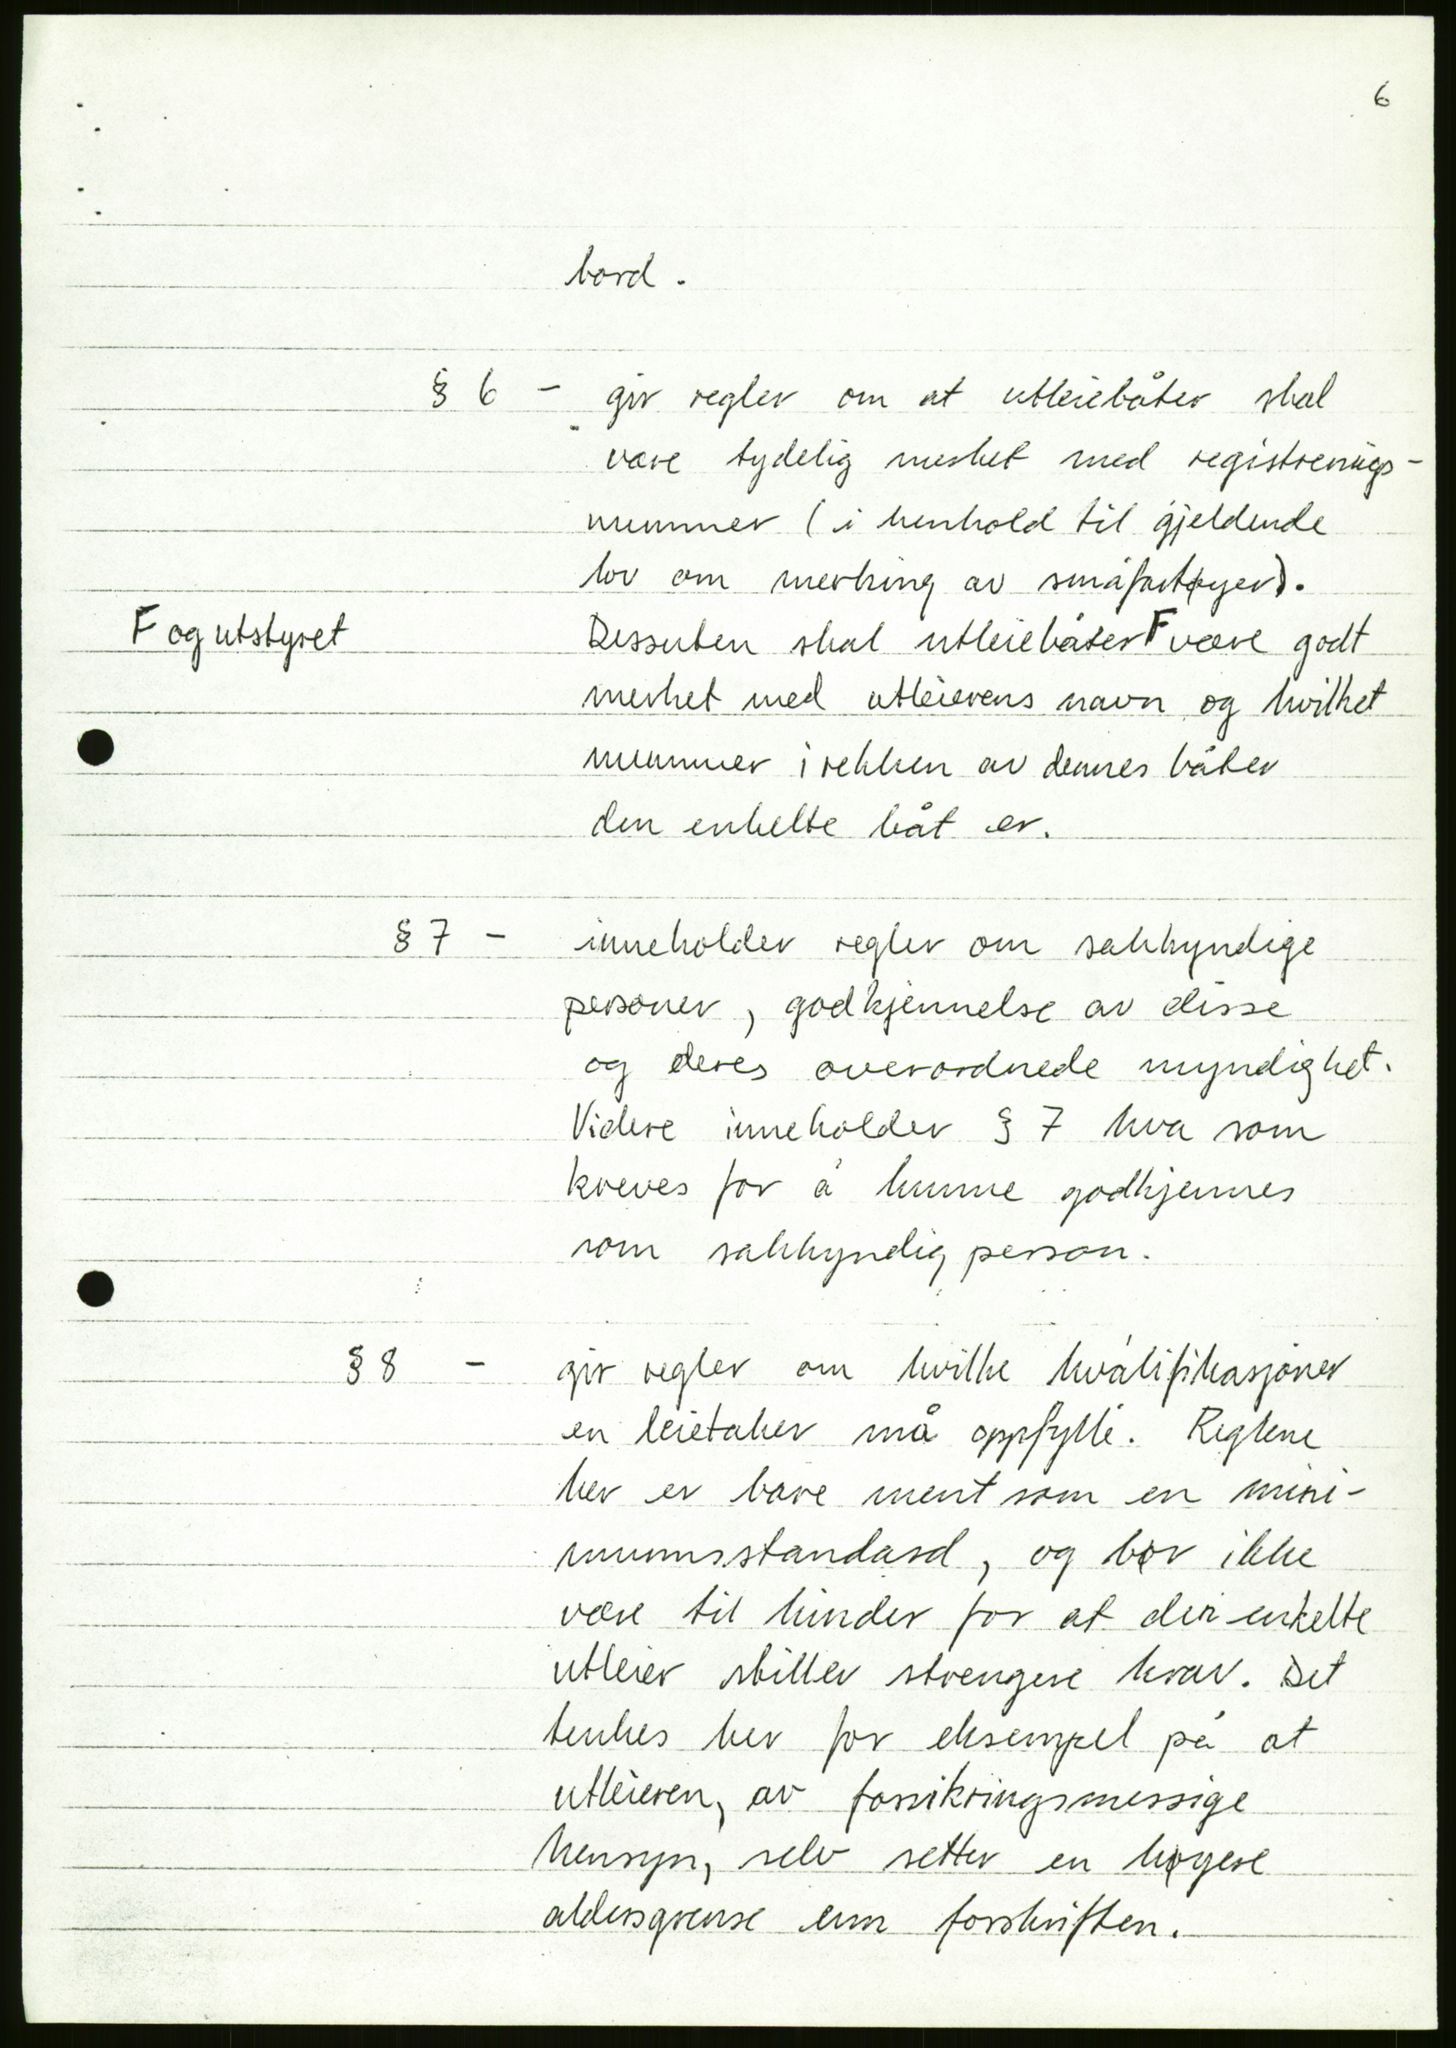 6
bord.
§ 6 - gir regler om at utleiebåter skal
være tydelig merket med registrerings-
nummer (i henhold til gjeldende
lov om merking av småfartøyer).
F og utstyret
Dessuten skal utleiebåter F være godt
merket med utleierens navn og hvilket
nummer i rekken av dennes båter
den enkelte båt er.
§ 7 - inneholder regler om sakkyndige
personer, godkjennelse av disse
og deres overordnede myndighet.
Videre inneholder § 7 hva som
kreves for å kunne godkjennes
som sakkyndig person.
§ 8 - gir regler om hvilke kvalifikasjoner
en leietaker må oppfylle. Reglene
her er bare ment som en mini-
mumsstandard, og bør ikke
være til hinder for at den enkelte
utleier stiller strengere krav. Det
tenkes her for eksempel på at
utleieren, av forsikringsmessige
hensyn, selv setter en høyere
aldersgrense enn forskriften.